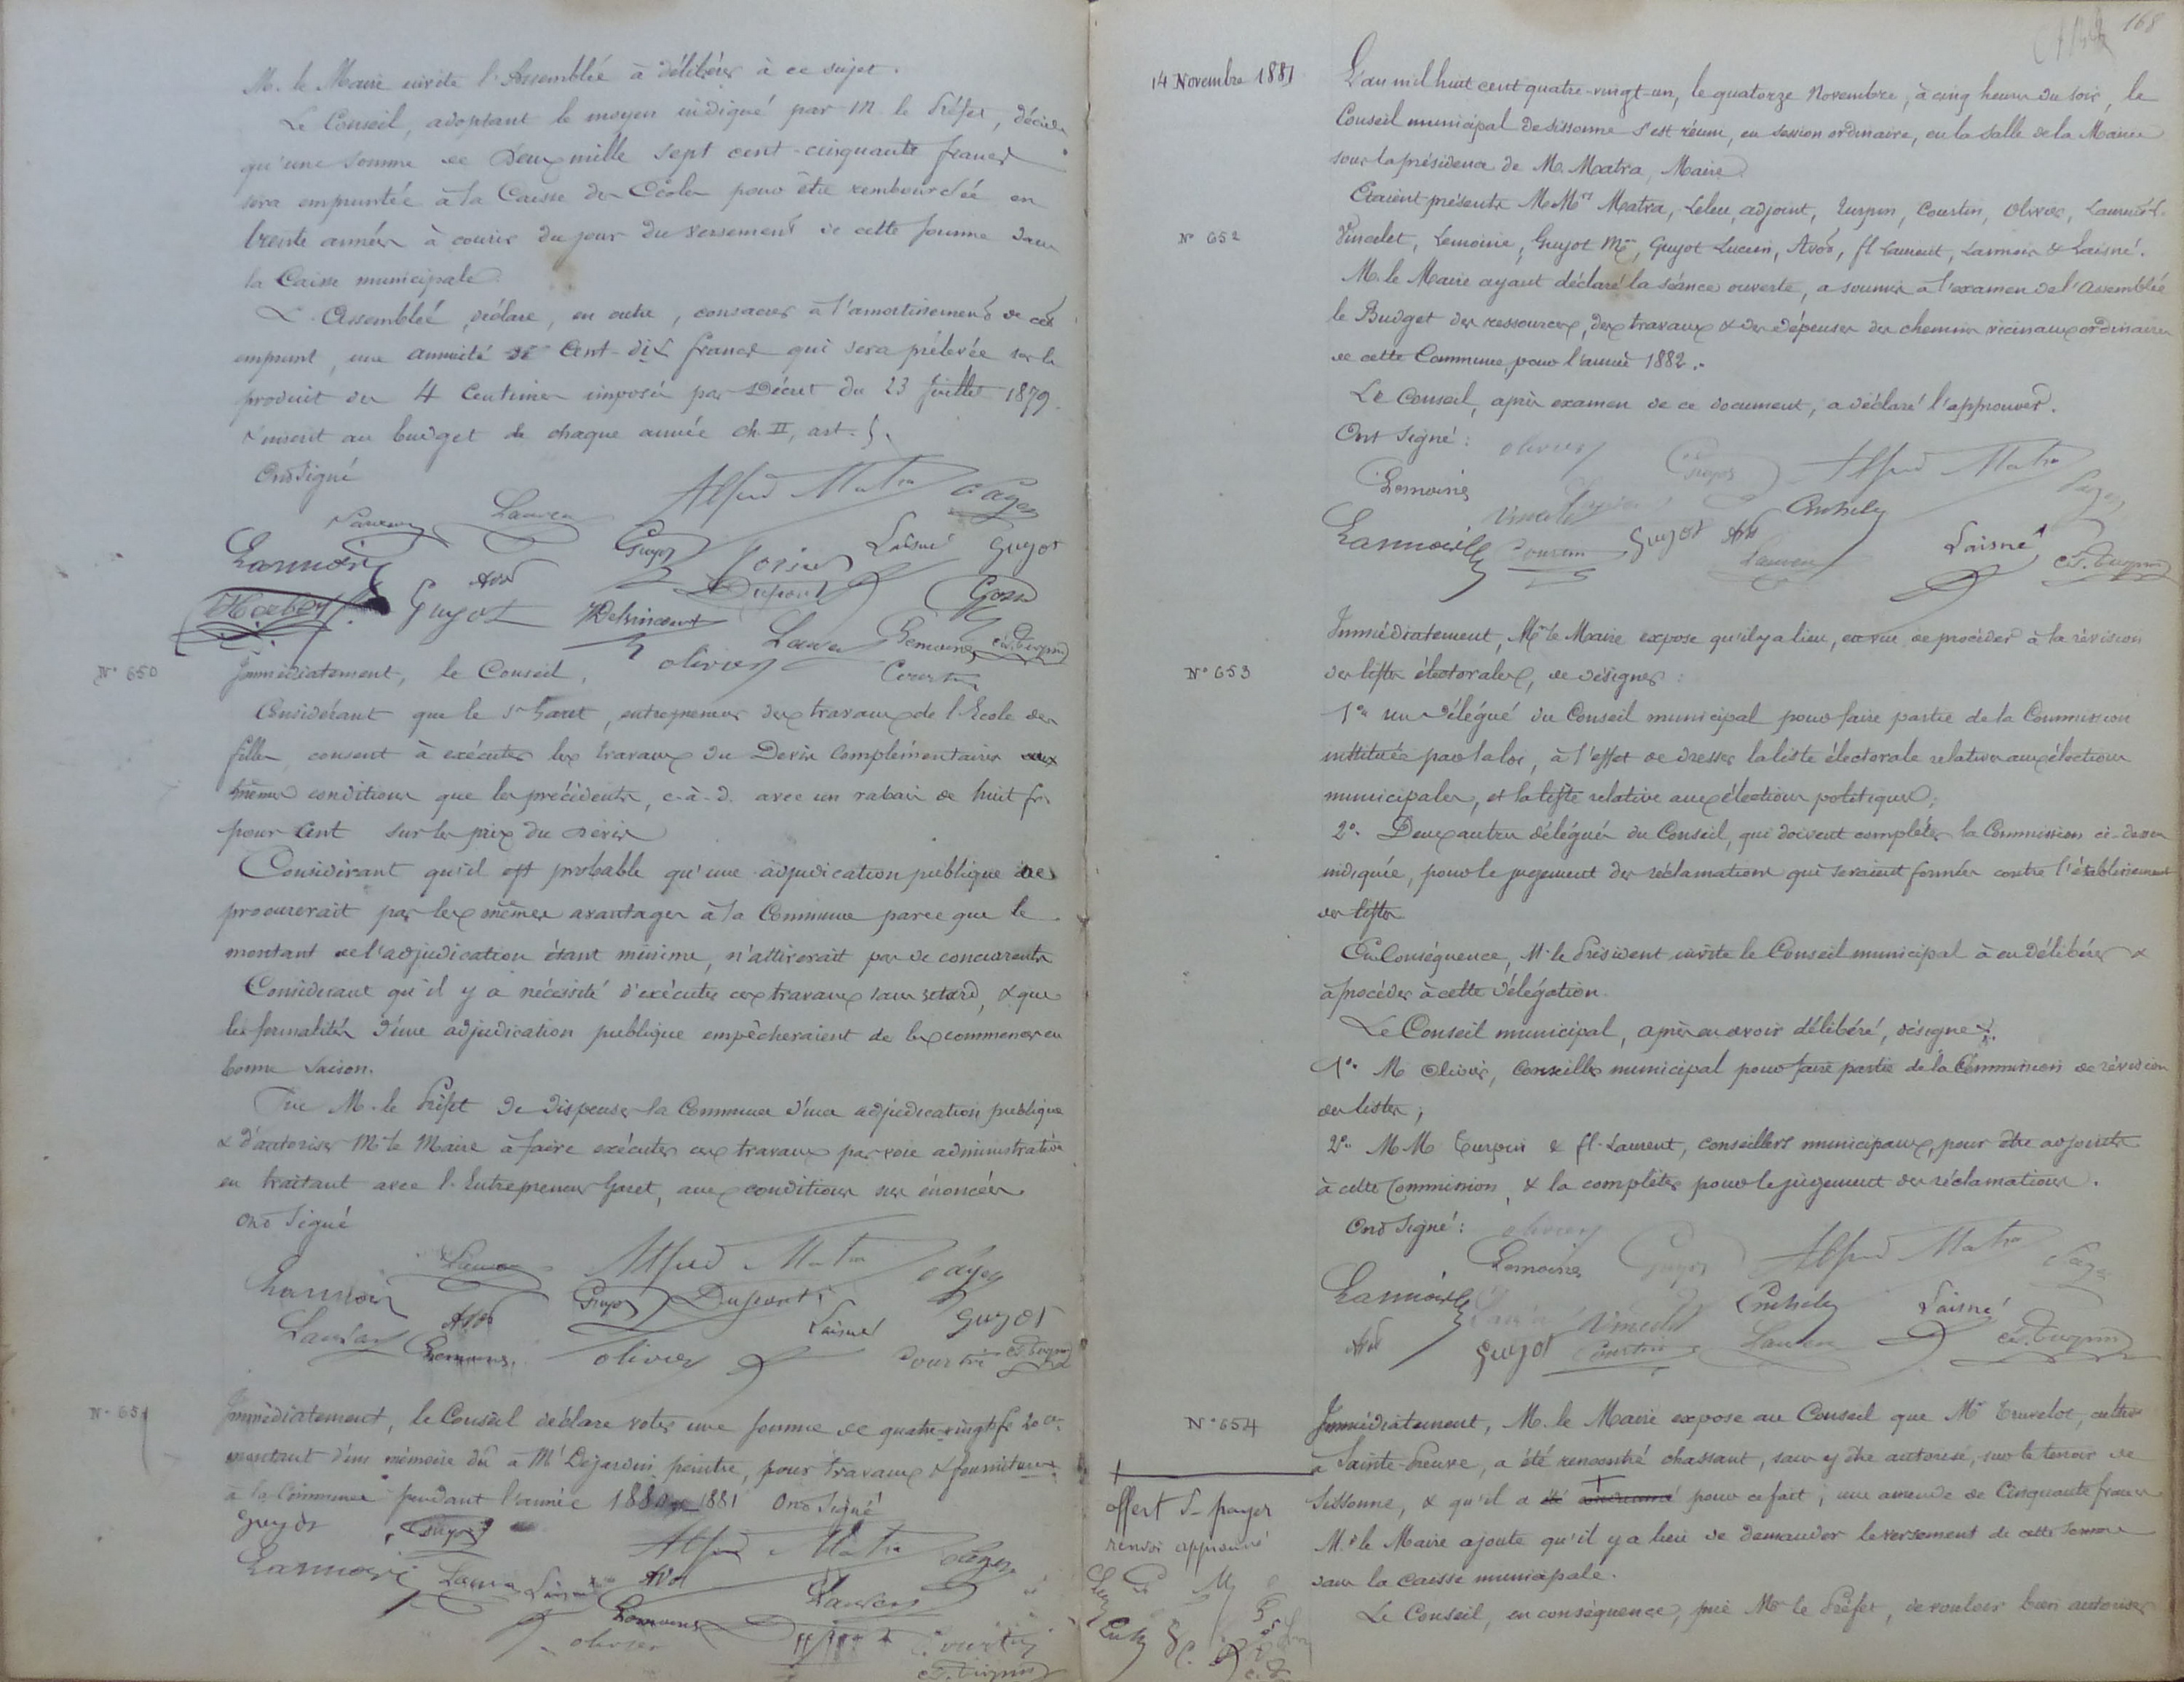 M. le Maire invite l'Assemblée à délibérer à ce sujet.
Le Conseil, adoptant le moyen indiqué par M. le Préfet, décide
qu'une somme de Deux mille sept cent-cinquante francs
sera empruntée à la Caisse des Ecoles pour être remboursée en
trente années à courir du jour du versement de cette somme dans
la Caisse municipale
L'Assemblée, déclare, en outre, consacrer à l'amortissement de cet
emprunt, une annuité de Cent-dix francs qui sera prélevée sur le
produit des 4 Centimes imposés par Décret du 23 Juillet 1879.
s'inscrit au budget de chaque année ch. II, art.
Ont Signé
Laurent Alfred Matra Payen
Lannois Guyot Laisné Guyot
Avot Dupont
Guyot Delvincourt Laurent Lemoine C.T. Turpin
olivier Courtin
N° 650
Immédiatement, le Conseil,
Considérant que le Sr Garet, entrepreneur des travaux de l'Ecole des
filles, consent à exécuter les travaux du Devis Complémentaires aux
mêmes conditions que les précédents, c.-à-d. avec un rabais de huit fr.
pour cent sur les prix du devis
Considérant qu'il est probable qu'une adjudication publique ne
procurerait pas les mêmes avantages à la Commune parce que le
montant de l'adjudication étant minime, n'attirerait pas de concurrents
Considérant qu'il y a nécessité d'exécuter ces travaux sans retard, & que
les formalités d'une adjudication publique empêcheraient de les commencer en
bonne saison.
Prie M. le Préfet de dispenser la Commune d'une adjudication publique
& d'autoriser Mr le Maire à faire exécuter ces travaux par voie administrative
en traitant avec l'Entrepreneur Garet, aux conditions sus énoncées
Ont Signé
Laurent Alfred Matra Payen
Lannois Avot Guyot Dupont Laisné Guyot
Laurent Lemoine olivier Courtin C.T. Turpin
N° 651
Immédiatement, le Conseil déclare voter une somme de quatre-vingt fr 20 ces
montant d'un mémoire dû à Mr Dejardin peintre, pour travaux & fournitures
à la Commune pendant l'année 1880 1881 Ont Signé
Guyot Guyot Alfred Matra Payen
Lannois Laurent Laisné Avot Laurent
Lemoine Dupont Courtin
olivier C.T. Turpin
168
14 Novembre 1881
L'an mil huit cent quatre-vingt-un, le quatorze Novembre, à cinq heures du soir, le
Conseil municipal de Sissonne s'est réuni, en session ordinaire, en la salle de la Mairie
sous la présidence de M. Matra, Maire.
Etaient présents M Mrs Matra, Leleu, adjoint, Turpin, Courtin, Olivier, Laurent-L.
N° 652
Vincelet, Lemoine, Guyot Mn, Guyot Lucien, Avot, fl Laurent, Lannois & Laisné.
M. le Maire ayant déclaré la séance ouverte, a soumis à l'examen de l'Assemblée
le Budget des ressources, des travaux & des dépenses des chemins vicinaux ordinaires
de cette Commune, pour l'année 1882.
Le Conseil, après examen de ce document, a déclaré l'approuver.
Ont Signé : olivier Guyot Alfred Matra
Lemoine Vincelet Payen
Lannois Courtin Guyot Avot Laurent Laisné C.T. Turpin
Immédiatement, Mr le Maire expose qu'il y a lieu, en vue de procéder à la révision
N° 653
des listes électorales, de désigner :
1° un délégué du Conseil municipal pour faire partie de la Commission
instituée par la loi, à l'effet de dresser la liste électorale relative aux élections
municipales, et la liste relative aux élections politiques ;
2°. Deux autres délégués du Conseil, qui doivent compléter la Commission ci-dessus
indiquée, pour le jugement des réclamations qui seraient formées contre l'établissement
des listes
En Conséquence, M. le Président invite le Conseil municipal à en délibérer &
à procéder à cette délégation.
Le Conseil municipal, après en avoir délibéré, désigne :
1°. M Olivier, Conseiller municipal pour faire partie de la Commission de révision
des listes ;
2°. M.M Turpin & fl. Laurent, conseillers municipaux, pour être adjoints
à cette Commission, & la compléter pour le jugement des réclamations.
Ont Signé : olivier
Lemoine Guyot Alfred Matra Payen
Lannois Vincelet Laisné
Avot Guyot Courtin Laurent C.T. Turpin
N° 654
Immédiatement, M. le Maire expose au Conseil que Mr Truvelot,
à Sainte-Preuve, a été rencontré chassant, sans y être autorisé, sur le terroir de
Sissonne, & qu'il a été condamné pour ce fait, une amende de Cinquante francs
M. le Maire ajoute qu'il y a lieu de demander le versement de cette somme
dans la caisse municipale.
Le Conseil, en conséquence, prie Mr le Préfet, de vouloir bien autoriser
offert d payer
renvoi approuvé